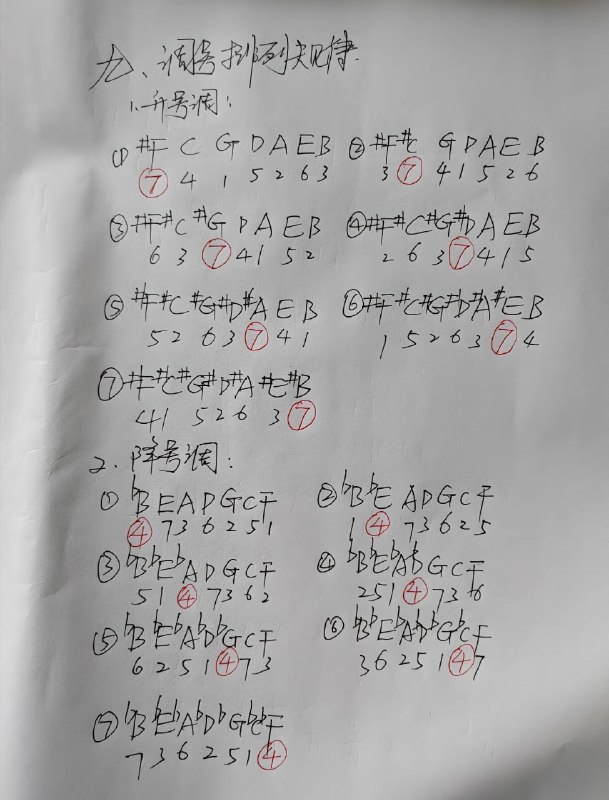 九、调号排列规律
1.升号调:
① #F C G D A E B ② #F #C G D A E B
7 4 1 5 2 6 3 3 7 4 1 5 2 6
③ #F #C #G D A E B ④ #F #C #G #D A E B
6 3 7 4 1 5 2 2 6 3 7 4 1 5
⑤ #F #C #G #D #A E B ⑥ #F #C #G #D #A #E B
5 2 6 3 7 4 1 1 5 2 6 3 7 4
⑦ #F #C #G #D #A #E #B
4 1 5 2 6 3 7
2、降号调:
① ♭B E A D G C F ② ♭B ♭E A D G C F
4 7 3 6 2 5 1 1 4 7 3 6 2 5
③ ♭B ♭E ♭A D G C F ④ ♭B ♭E ♭A ♭D G C F
5 1 4 7 3 6 2 2 5 1 4 7 3 6
⑤ ♭B ♭E ♭A ♭D ♭G C F ⑥ ♭B ♭E ♭A ♭D ♭G ♭C F
6 2 5 1 4 7 3 3 6 2 5 1 4 7
⑦ ♭B ♭E ♭A ♭D ♭G ♭C ♭F
7 3 6 2 5 1 4